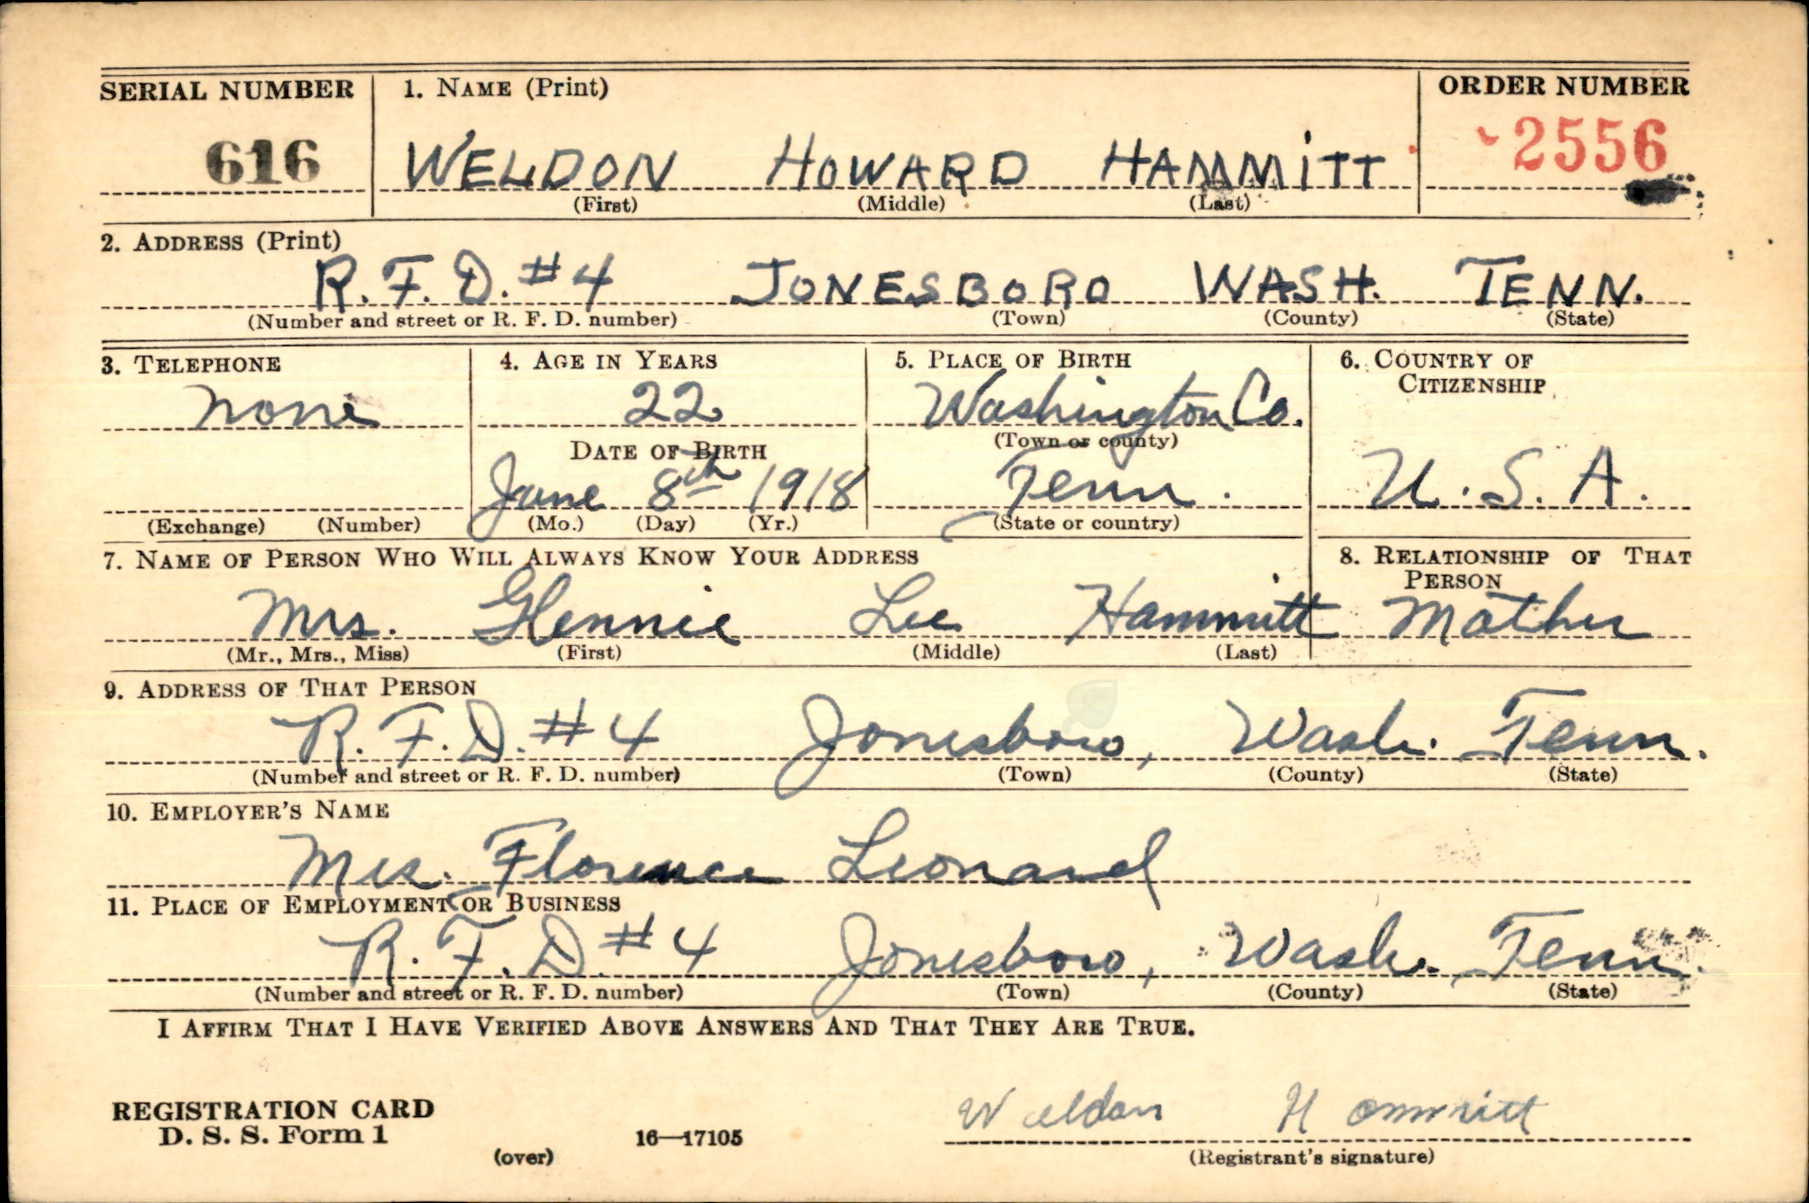 SERIAL NUMBER 1. NAME (Print) ORDER NUMBER
616 WELDON HOWARD HAMMITT 2556
(First) (Middle) (Last)
2. ADDRESS (Print)
R.F.D. #4 JONESBORO WASH. TENN.
(Number and street or R. F. D. number) (Town) (County) (State)
3. TELEPHONE 4. AGE IN YEARS 5. PLACE OF BIRTH 6. COUNTRY OF
CITIZENSHIP
none 22 Washington Co.
DATE OF BIRTH (Town or county)
June 8th 1918 Tenn. U.S.A.
(Exchange) (Number) (Mo.) (Day) (Yr.) (State or country)
7. NAME OF PERSON WHO WILL ALWAYS KNOW YOUR ADDRESS 8. RELATIONSHIP OF THAT
PERSON
Mrs. Glennie Lee Hammitt Mother
(Mr., Mrs., Miss) (First) (Middle) (Last)
9. ADDRESS OF THAT PERSON
R.F.D. #4 Jonesboro, Wash. Tenn.
(Number and street or R. F. D. number) (Town) (County) (State)
10. EMPLOYER'S NAME
Mrs. Florence Leonard
11. PLACE OF EMPLOYMENT OR BUSINESS
R.F.D. #4 Jonesboro, Wash. Tenn.
(Number and street or R. F. D. number) (Town) (County) (State)
I AFFIRM THAT I HAVE VERIFIED ABOVE ANSWERS AND THAT THEY ARE TRUE.
REGISTRATION CARD Weldon Hammitt
D. S. S. Form 1 16—17105
(over) (Registrant's signature)